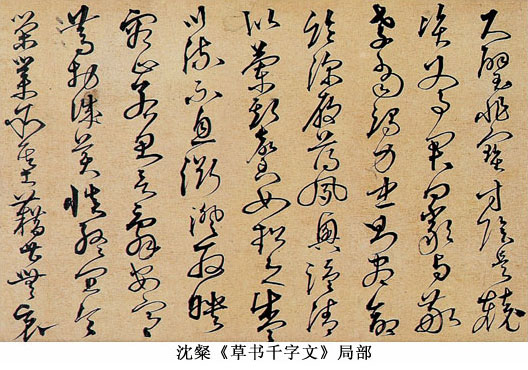 尺璧非寶寸陰是競
資父事君曰嚴與敬
孝當竭力忠則盡命
臨深履薄夙興溫凊
似蘭斯馨如松之盛
川流不息淵澄取映
容止若思言辭安定
篤初誠美慎終宜令
榮業所基藉甚無竟
沈粲《草书千字文》局部